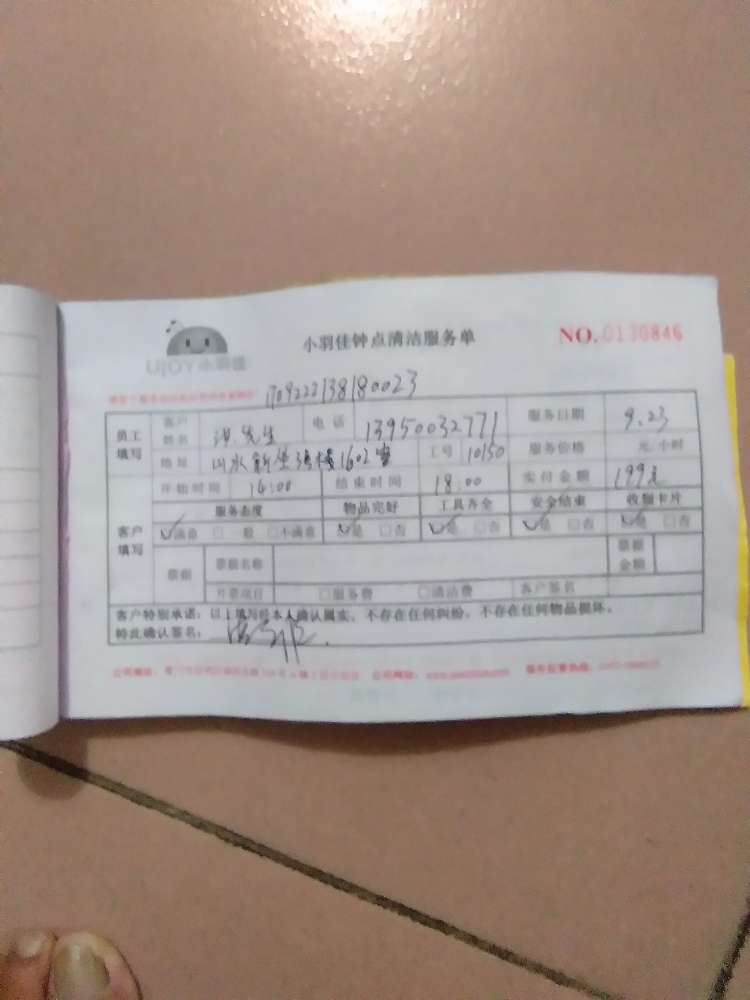 UJOY小羽佳
小羽佳钟点清洁服务单
NO.0130846
1709222138180023
员工填写 客户姓名 洪先生 电话 13950032771 服务日期 9.23
地址 1602室 工号 10150 服务价格 元/小时
开始时间 14:00 结束时间 18:00 实付金额 199元
客户填写 服务态度 物品完好 工具齐全 安全结束 收据卡片
☑满意 □一般 □不满意 ☑是 □否 ☑是 □否 ☑是 □否 ☑是 □否
票据 票据名称 票据金额
开票项目 □服务费 □清洁费 客户签名
客户特别承诺：以上填写经本人确认属实，不存在任何纠纷，不存在任何物品损坏。
特此确认签名：